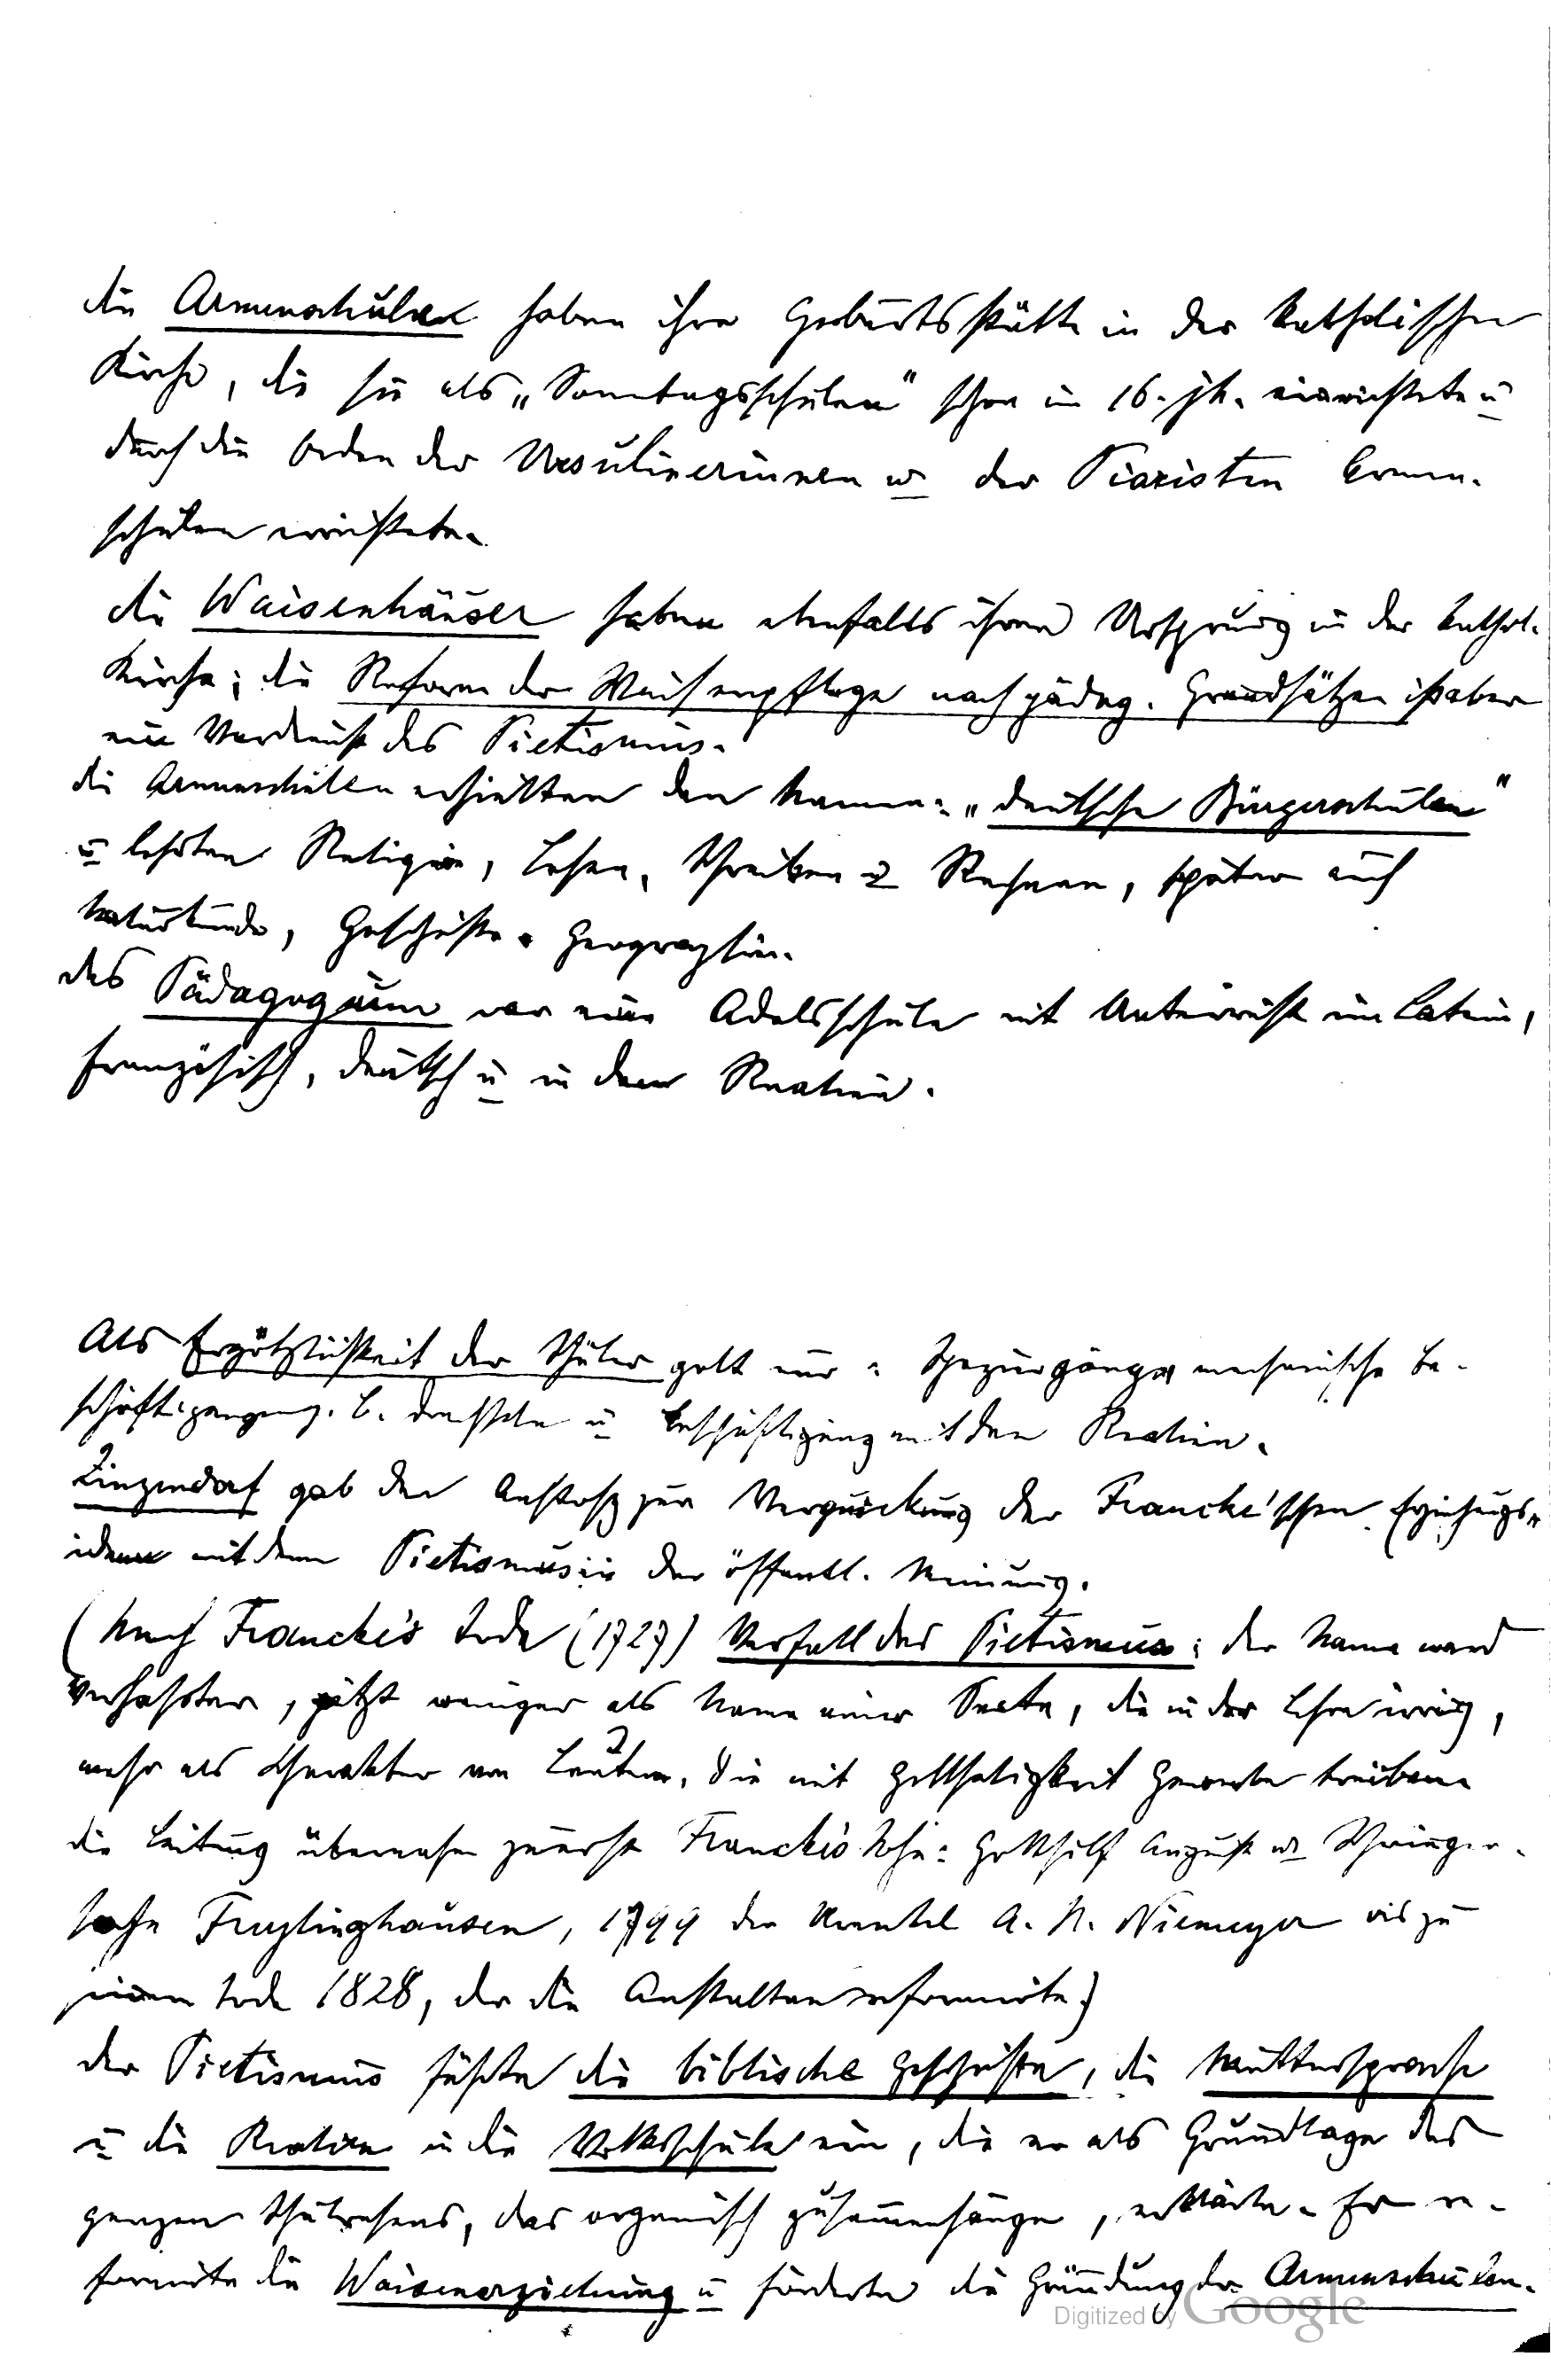 die Armenschulen haben ihre Geburtsstätte in der katholischen
Kirche, die sie als „Sonntagsschulen" schon im 16. Jh. einrichtete u
durch die Orden der Ursulinerinnen u der Piaristen Armen-
schulen errichtete.
die Waisenhäuser haben ebenfalls ihren Ursprung in der kathol.
Kirche; die Reform der Waisenpflege nach pädag. Grundsätzen ist aber
ein Verdienst des Pietismus.
die Armenschulen erhielten den Namen: „deutsche Bürgerschulen"
u lehrten Religion, Lesen, Schreiben u Rechnen, später auch
Naturkunde, Geschichte, Geographie.
das Pädagogium war eine Adelsschule mit Unterricht im Latein,
Französisch, deutsch u in den Realien.
Als Ergötzlichkeit der Schüler galt nur: Spaziergänge, mechanische Be-
schäftigungen z. B. drechseln u Beschäftigung mit den Realien.
Zinzendorf gab den Anstoß zur Verquickung der Francke'schen Erziehungs-
ideen mit dem Pietismus in der öffentl. Meinung.
(Nach Francke's Tode (1727) Verfall des Pietismus; der Name ward
verhaßter, jetzt weniger als Name einer Secte, die in der Lehre irrig,
mehr als Charakter von Leuten, die mit Gottseligkeit Gewerbe treiben.
die Leitung übernahm zuerst Francke's Sohn: Gotthilf August u Schwieger-
sohn Freylinghausen, 1799 der Urenkel A. H. Niemeyer bis zu
seinem Tode 1828, der die Anstalten reformirte.)
der Pietismus führte die biblische Geschichte, die Muttersprache
u die Realien in die Volksschule ein, die er als Grundlage des
ganzen Schulwesens, das organisch zusammenhänge, erklärte. Er re-
formirte die Waisenerziehung u förderte die Gründung der Armenschulen.
Digitized by Google